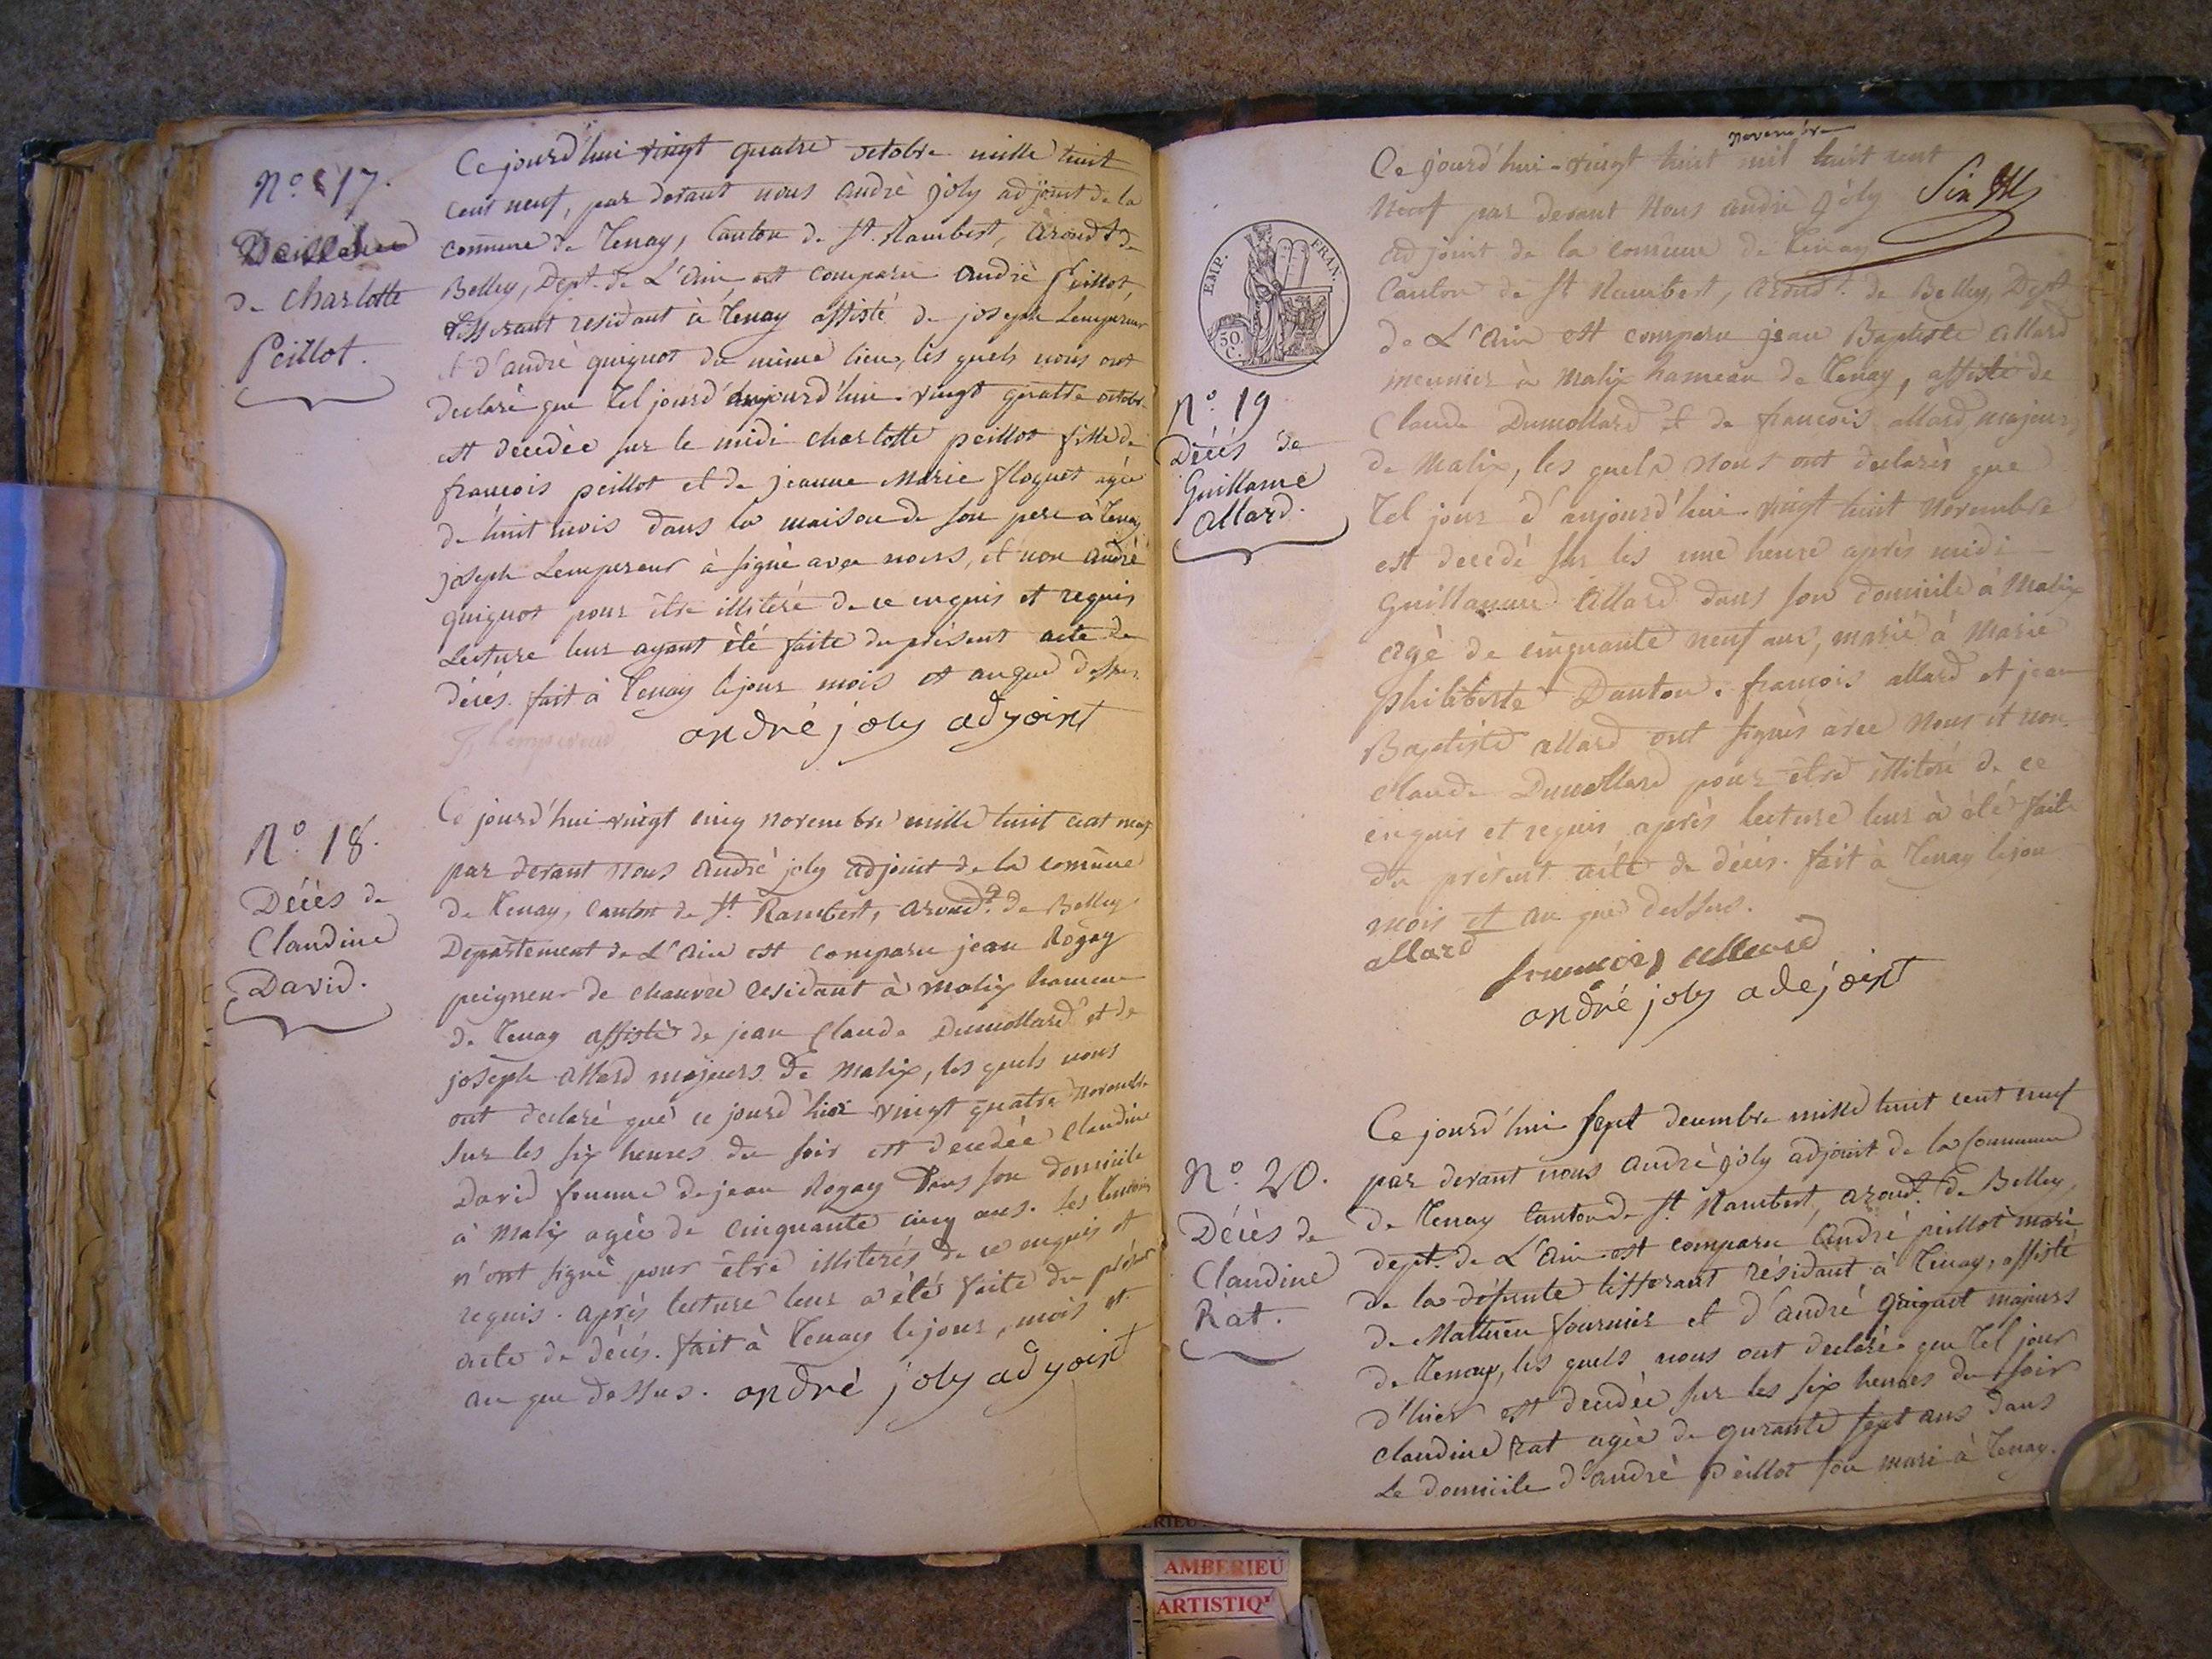 N° 17.
de Charlotte
Peillot.
Ce jourd'hui vingt quatre octobre mille huit
cent neuf, par devant nous andré joly adjoint de la
commune de Tenay, Canton de St. Rambert, arondt de
Belley, Dept. de L'Ain est comparu andré Peillot,
tisserant residant à Tenay assisté de joseph Lempereur
et d'andré quignot du même lieu, les quels nous ont
declaré que tel jourd'aujourd'hui vingt quatre octobre
est decedée sur le midi charlotte peillot fille de
francois peillot et de jeanne Marie floquet agée
de huit mois dans la maison de son pere à Tenay
joseph Lempereur à signé avec nous, et non andré
quignot pour être illiteré de ce enquis et requis
Lecture leur ayant été faite du présent acte de
décés. fait à Tenay le jour mois et an que dessus
J Lempereur andré joly adjoint
N° 18.
Décès de
Claudine
David.
Ce jourd'hui vingt cinq novembre mille huit cent neuf
par devant nous andré joly adjoint de la comune
de Tenay, canton de St. Rambert, arondt. de Belley
Departement de L'Ain est comparu jean Rogay
peigneur de chanvre residant à malix hameau
de Tenay assisté de jean Claude Dumollard et de
joseph allard majeurs de malix, les quels nous
ont declaré que ce jourd'hier vingt quatre novembre
sur les six heures du soir est decedée Claudine
David femme de jean Rogay dans son domicile
à Malix agée de cinquante cinq ans. les temoins
n'ont signé pour être illiterés de ce enquis et
requis. après lecture leur a été faite du présent
acte de décés. fait à Tenay le jour, mois et
an que dessus. andré joly adjoint
novembre
Ce jourd'hui vingt huit mil huit cent
neuf par devant Nous andré joly
adjoint de la comune de Tenay
Canton de St Rambert arondt. de Belley Dept
de L'Ain est comparu jean Baptiste allard
meunier à Malix hameau de Tenay, assisté de
Claude Dumollard et de francois allard majeurs
de Malix, les quels Nous ont declarés que
Tel jour d'aujourd'hui vingt huit Novembre
est decedé sur les une heure après midi
Guillaume Allard dans son domicile à Malix
agé de cinquante neuf ans, marié à Marie
philiberte Danton. francois allard et jean
Baptiste allard ont signés avec Nous et non
Claude Dumollard pour être illiteré de ce
enquis et requis après lecture leur à été faite
du présent acte de décés. fait à Tenay le jour
mois et an que dessus.
allard
francois allard
andré joly adejoint
EMP. FRAN.
50.
C.
N° 19
Décés de
Guillame
allard.
N° 20.
Décès de
Claudine
Rat.
Ce jourd'hui sept decembre mille huit cent neuf
par devant nous andré joly adjoint de la Commune
de Tenay Canton de St. Rambert, arondt. de Belley,
dept. de L'Ain est comparu andré peillot mari
de la défunte tisserant résidant à Tenay, assisté
de Mathieu fournier et d'andré quignot majeurs
de Tenay, les quels nous ont declaré que tel jour
d'hier est decedée sur les six heures du soir
claudine rat agée de quarante sept ans dans
Le domicile d'andré peillot son mari à Tenay.
AMBERIEU
ARTISTIQ